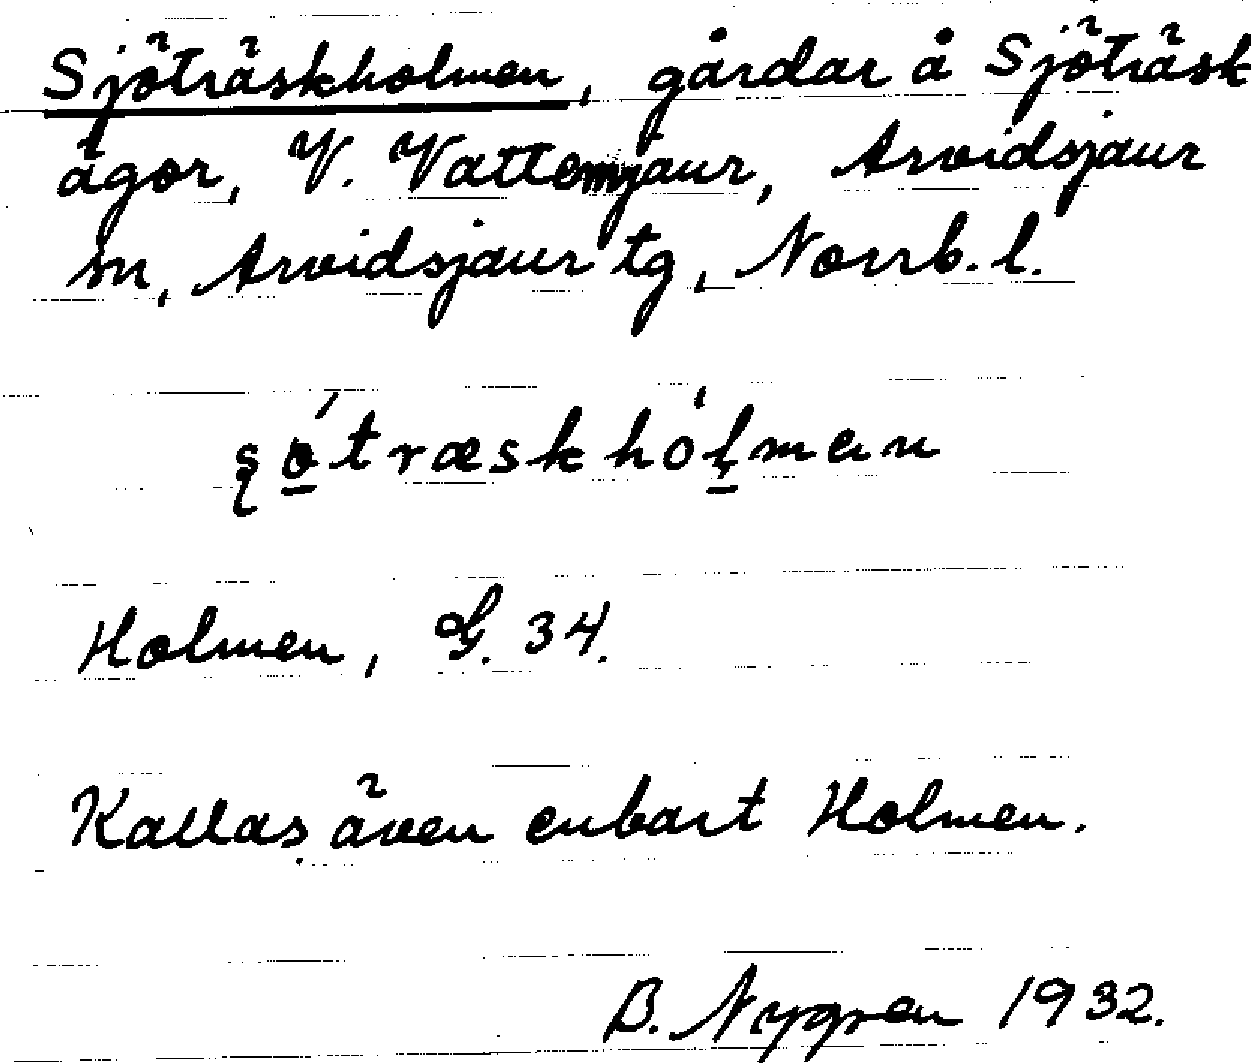 Sjöträskholmen, gårdar å Sjöträsk
ägor, V. Vattemjaur, Arvidsjaur
sn, Arvidsjaur tg, Norrb. l.
Holmen, G. 34.
Kallas även enbart Holmen.
B. Nygren 1932.